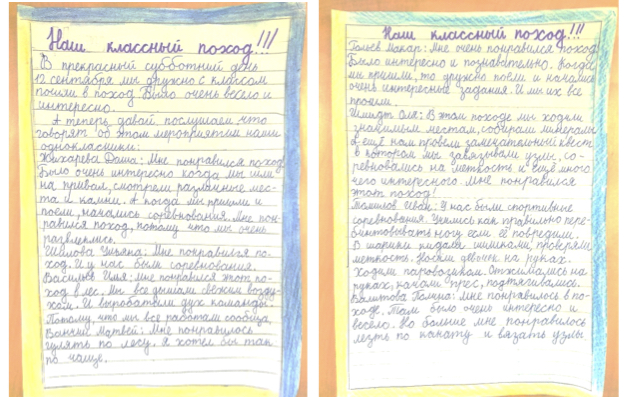 Наш классный поход!!!
В прекрасный субботний день
12 сентября мы дружно с классом
пошли в поход. Было очень весело и
интересно.
А теперь, давай послушаем что
говорят об этом мероприятии наши
одноклассники:
Жихарева Даша: Мне понравился поход.
Было очень интересно когда мы шли
на привал, смотрели различные мес-
та и камни. А когда мы пришли и
поели, начались соревнования. Мне пон-
равился поход, потому что мы очень
развлеклись.
Шилова Ульяна: Мне понравился по-
ход. И у нас были соревнования.
Васильев Илья: мне понравился этот по-
ход в лес. Мы все дышали свежим возду-
хом. И выработали дух команды.
Потому, что мы все работали сообща.
Ванкин Матвей: Мне понравилось
гулять по лесу. Я хотел бы так
по чаще.
Наш классный поход!!!
Макар: Мне очень понравился поход
Было интересно и познавательно. Когда
мы пришли, то дружно поели и начались
очень интересные задания. И мы их все
прошли.
Шмидт Оля: В этом походе мы ходили
знакомым местам, собирали минералы
А ещё нам провели замечательный квест
в котором мы завязывали узлы, со-
ревновались на меткость и ещё много
чего интересного. Мне понравился
этот поход!
Иван: У нас были спортивные
соревнования. Учились как правильно пере-
бинтовывать ногу если её повредили.
В шарики кидали шишками, проверяли
меткость. Носили девочек на руках.
Ходили паровозиком. Отжимались на
руках, качали прес, подтягивались.
Полина: Мне понравилось в по-
ходе. Там было очень интересно и
весело. Но больше мне понравилось
лезть по канату и вязать узлы